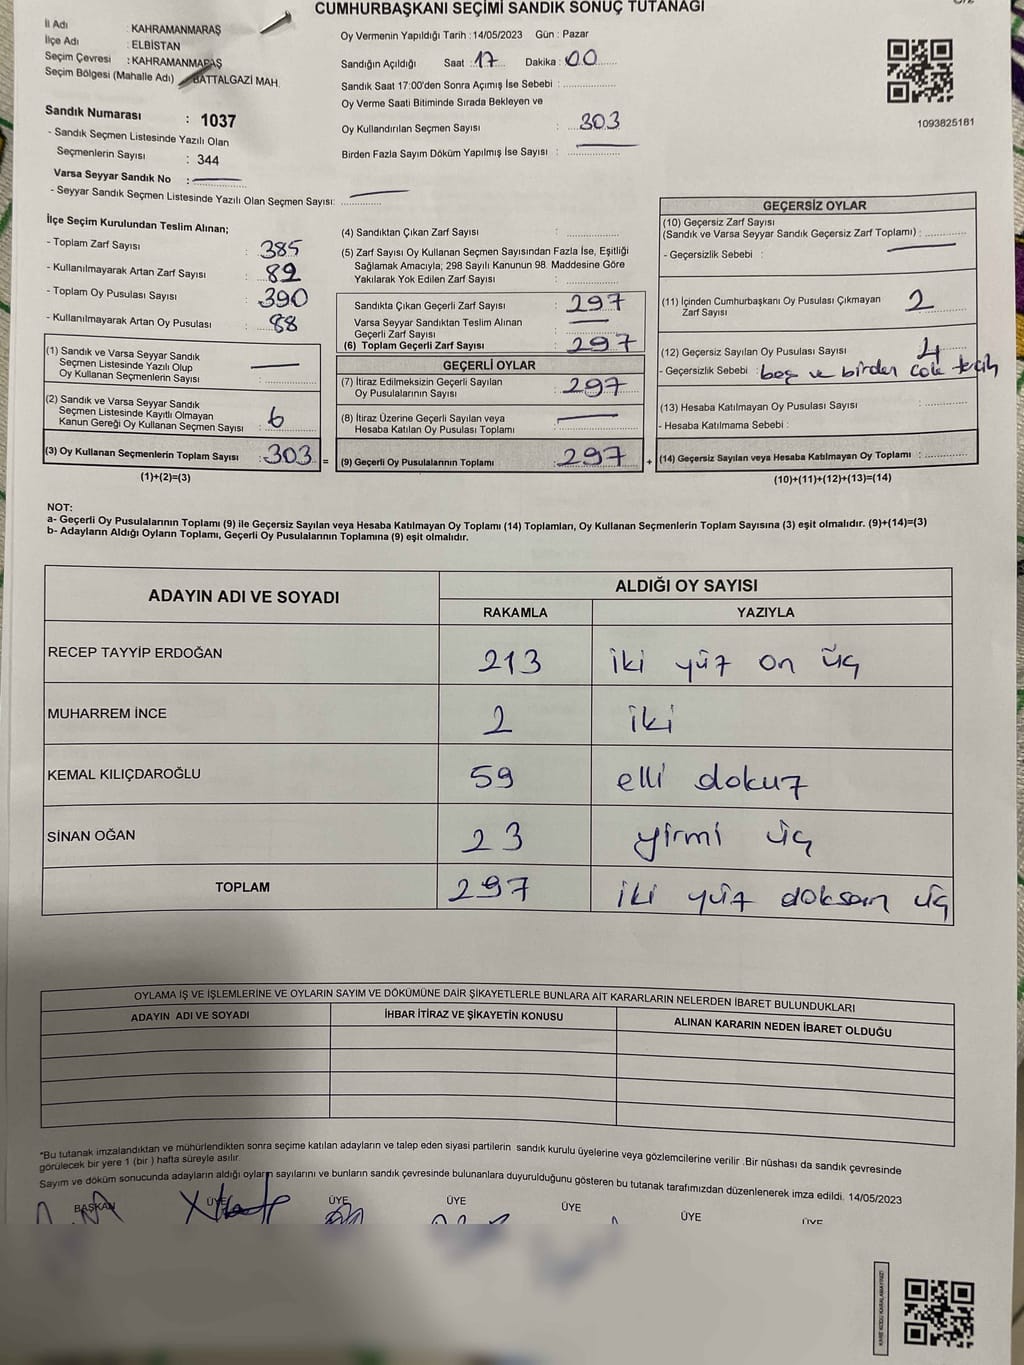 CUMHURBAŞKANI SEÇİMİ SANDIK SONUÇ TUTANAĞI
İl Adı : KAHRAMANMARAŞ
İlçe Adı : ELBİSTAN
Seçim Çevresi : KAHRAMANMARAŞ
Seçim Bölgesi (Mahalle Adı) BATTALGAZİ MAH.
Sandık Numarası : 1037
- Sandık Seçmen Listesinde Yazılı Olan
Seçmenlerin Sayısı : 344
Varsa Seyyar Sandık No :
- Seyyar Sandık Seçmen Listesinde Yazılı Olan Seçmen Sayısı:
Oy Vermenin Yapıldığı Tarih : 14/05/2023 Gün : Pazar
Sandığın Açıldığı Saat : 17 Dakika : 00
Sandık Saat 17:00'den Sonra Açımış İse Sebebi :
Oy Verme Saati Bitiminde Sırada Bekleyen ve
Oy Kullandırılan Seçmen Sayısı : 303
Birden Fazla Sayım Döküm Yapılmış İse Sayısı :
1093825181
İlçe Seçim Kurulundan Teslim Alınan;
- Toplam Zarf Sayısı : 385
- Kullanılmayarak Artan Zarf Sayısı : 89
- Toplam Oy Pusulası Sayısı : 390
- Kullanılmayarak Artan Oy Pusulası : 88
(1) Sandık ve Varsa Seyyar Sandık
Seçmen Listesinde Yazılı Olup
Oy Kullanan Seçmenlerin Sayısı :
(2) Sandık ve Varsa Seyyar Sandık
Seçmen Listesinde Kayıtlı Olmayan
Kanun Gereği Oy Kullanan Seçmen Sayısı : 6
(3) Oy Kullanan Seçmenlerin Toplam Sayısı : 303 =
(1)+(2)=(3)
(4) Sandıktan Çıkan Zarf Sayısı :
(5) Zarf Sayısı Oy Kullanan Seçmen Sayısından Fazla İse, Eşitliği
Sağlamak Amacıyla; 298 Sayılı Kanunun 98. Maddesine Göre
Yakılarak Yok Edilen Zarf Sayısı :
Sandıkta Çıkan Geçerli Zarf Sayısı : 297
Varsa Seyyar Sandıktan Teslim Alınan
Geçerli Zarf Sayısı :
(6) Toplam Geçerli Zarf Sayısı : 297
GEÇERLİ OYLAR
(7) İtiraz Edilmeksizin Geçerli Sayılan
Oy Pusulalarının Sayısı : 297
(8) İtiraz Üzerine Geçerli Sayılan veya
Hesaba Katılan Oy Pusulası Toplamı :
(9) Geçerli Oy Pusulalarının Toplamı : 297 +
GEÇERSİZ OYLAR
(10) Geçersiz Zarf Sayısı
(Sandık ve Varsa Seyyar Sandık Geçersiz Zarf Toplamı) :
- Geçersizlik Sebebi :
(11) İçinden Cumhurbaşkanı Oy Pusulası Çıkmayan
Zarf Sayısı : 2
(12) Geçersiz Sayılan Oy Pusulası Sayısı : 4
- Geçersizlik Sebebi : boş ve birden çok tercih
(13) Hesaba Katılmayan Oy Pusulası Sayısı :
- Hesaba Katılmama Sebebi :
(14) Geçersiz Sayılan veya Hesaba Katılmayan Oy Toplamı :
(10)+(11)+(12)+(13)=(14)
NOT:
a- Geçerli Oy Pusulalarının Toplamı (9) ile Geçersiz Sayılan veya Hesaba Katılmayan Oy Toplamı (14) Toplamları, Oy Kullanan Seçmenlerin Toplam Sayısına (3) eşit olmalıdır. (9)+(14)=(3)
b- Adayların Aldığı Oyların Toplamı, Geçerli Oy Pusulalarının Toplamına (9) eşit olmalıdır.
ADAYIN ADI VE SOYADI
ALDIĞI OY SAYISI
RAKAMLA YAZIYLA
RECEP TAYYİP ERDOĞAN 213 iki yüz on üç
MUHARREM İNCE 2 iki
KEMAL KILIÇDAROĞLU 59 elli dokuz
SİNAN OĞAN 23 yirmi üç
TOPLAM 297 iki yüz doksan üç
OYLAMA İŞ VE İŞLEMLERİNE VE OYLARIN SAYIM VE DÖKÜMÜNE DAİR ŞİKAYETLERLE BUNLARA AİT KARARLARIN NELERDEN İBARET BULUNDUKLARI
ADAYIN ADI VE SOYADI İHBAR İTİRAZ VE ŞİKAYETİN KONUSU ALINAN KARARIN NEDEN İBARET OLDUĞU
*Bu tutanak imzalandıktan ve mühürlendikten sonra seçime katılan adayların ve talep eden siyasi partilerin sandık kurulu üyelerine veya gözlemcilerine verilir .Bir nüshası da sandık çevresinde
görülecek bir yere 1 (bir ) hafta süreyle asılır.
Sayım ve döküm sonucunda adayların aldığı oyların sayılarını ve bunların sandık çevresinde bulunanlara duyurulduğunu gösteren bu tutanak tarafımızdan düzenlenerek imza edildi. 14/05/2023
BAŞKAN ÜYE ÜYE ÜYE ÜYE ÜYE ÜYE